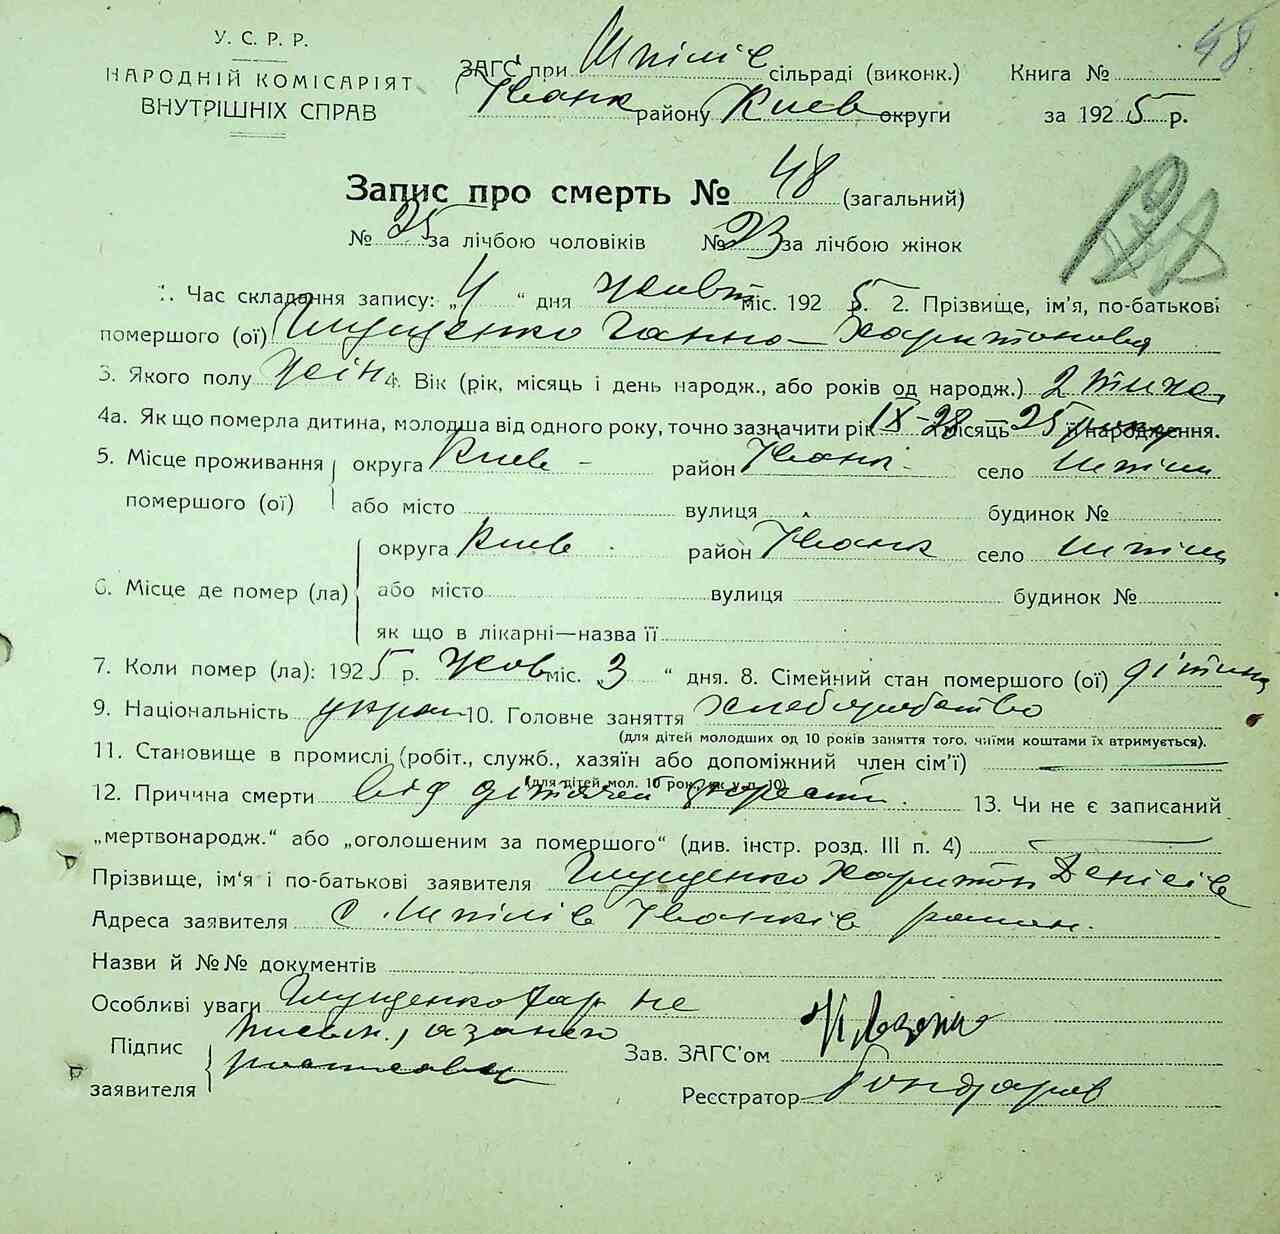 48
У. С. Р. Р.
НАРОДНІЙ КОМІСАРІЯТ
ВНУТРІШНІХ СПРАВ
ЗАГС при Шпілів сільраді (виконк.) Книга №
Іванк району Киев округи за 1925 р.
Запис про смерть № 48 (загальний)
№ 25 за лічбою чоловіків № 23 за лічбою жінок
1. Час складання запису: „4“ дня Жовт міс. 1925. 2. Прізвище, ім'я, по-батькові
помершого (ої) Глущенко Ганна Харитоновна
3. Якого полу Жін 4. Вік (рік, місяць і день народж., або років од народж.) 2 тижн
4а. Як що померла дитина, молодша від одного року, точно зазначити рік IX - 28 місяць 25 її народження.
5. Місце проживання округа Киев - район Іванк. село Шпіли
помершого (ої) або місто вулиця будинок №
округа Киев. район Іванк село Шпіли
6. Місце де помер (ла) або місто вулиця будинок №
як що в лікарні—назва її
7. Коли помер (ла): 1925 р. Жов міс. „3“ дня. 8. Сімейний стан помершого (ої) дітина
9. Національність укра 10. Головне заняття Хлеборобство
(для дітей молодших од 10 років заняття того, чиїми коштами їх втримується).
11. Становище в промислі (робіт., служб., хазяїн або допоміжний член сім'ї)
(для дітей мол. 10 рок., як у п. 10)
12. Причина смерти від дітячей 13. Чи не є записаний
„мертвонародж.“ або „оголошеним за помершого“ (див. інстр. розд. III п. 4)
Прізвище, ім'я і по-батькові заявителя Глущенко Харитон Денісів
Адреса заявителя с. Шпілів Іванків район.
Назви й №№ документів
Особливі уваги Глущенко Хар не
Підпис письм., а за него
заявителя росписався
Зав. ЗАГС'ом
Реєстратор Гондарев